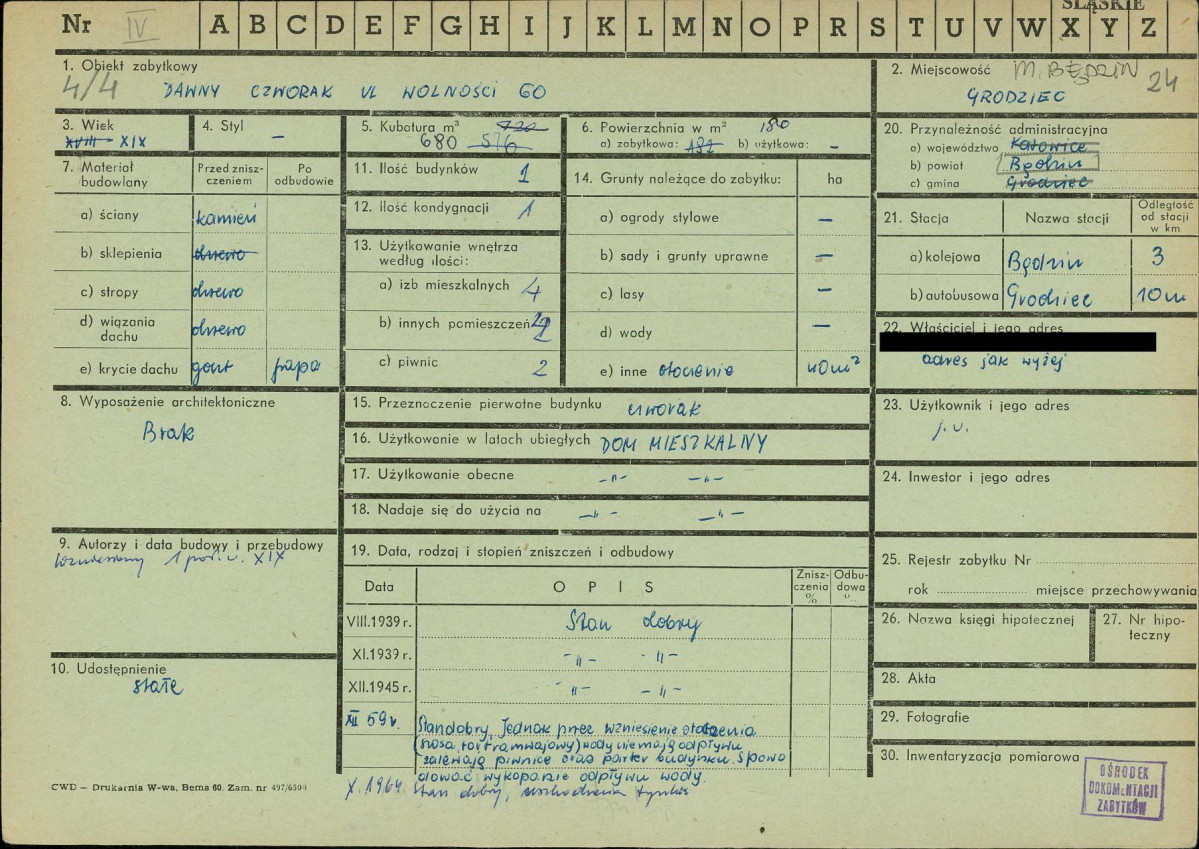 ŚLĄSKIE
Nr IV A B C D E F G H I J K L M N O P R S T U V W X Y Z
1. Obiekt zabytkowy
4/4 DAWNY CZWORAK UL WOLNOŚCI 60
2. Miejscowość M. BĘDZIN 24
GRODZIEC
3. Wiek
XVIII - XIX
4. Styl
—
5. Kubatura m³ 720
680 576
6. Powierzchnia w m² 180
a) zabytkowa: 182 b) użytkowa: —
20. Przynależność administracyjna
a) województwo Katowice
b) powiat Będzin
c) gmina Grodziec
7. Materiał budowlany
Przed zniszczeniem
Po odbudowie
a) ściany kamień
b) sklepienia drzewo
c) stropy drzewo
d) wiązania dachu drzewo
e) krycie dachu gont papa
11. Ilość budynków 1
12. Ilość kondygnacji 1
13. Użytkowanie wnętrza
według ilości:
a) izb mieszkalnych 4
b) innych pomieszczeń 2
c) piwnic 2
14. Grunty należące do zabytku: ha
a) ogrody stylowe —
b) sady i grunty uprawne —
c) lasy —
d) wody —
e) inne otoczenie 40 m²
21. Stacja Nazwa stacji Odległość od stacji w km
a) kolejowa Będzin 3
b) autobusowa Grodziec 10 m
22. Właściciel i jego adres
adres jak wyżej
8. Wyposażenie architektoniczne
Brak
15. Przeznaczenie pierwotne budynku czworak
16. Użytkowanie w latach ubiegłych DOM MIESZKALNY
17. Użytkowanie obecne -"- -"-
18. Nadaje się do użycia na -"- -"-
23. Użytkownik i jego adres
j.w.
24. Inwestor i jego adres
9. Autorzy i data budowy i przebudowy
Wzniesiony 1 poł. w. XIX
10. Udostępnienie
stałe
19. Data, rodzaj i stopień zniszczeń i odbudowy
Data OPIS Zniszczenia % Odbudowa "..
VIII.1939 r. Stan dobry
XI.1939 r. -"- -"-
XII.1945 r. -"- -"-
XII 59 r. Stan dobry, Jednak przez wzniesienie otoczenia
(szosa, tor tramwajowy) wody nie mają odpływu
zalewają piwnice oraz parter budynku. Spowo
dować wykopanie odpływu wody.
X.1964 Stan dobry, uszkodzenia tynków
25. Rejestr zabytku Nr
rok miejsce przechowywania
26. Nazwa księgi hipotecznej
27. Nr hipoteczny
28. Akta
29. Fotografie
30. Inwentaryzacja pomiarowa
OŚRODEK
DOKUMENTACJI
ZABYTKÓW
CWD – Drukarnia W-wa, Bema 60. Zam. nr 497/6500